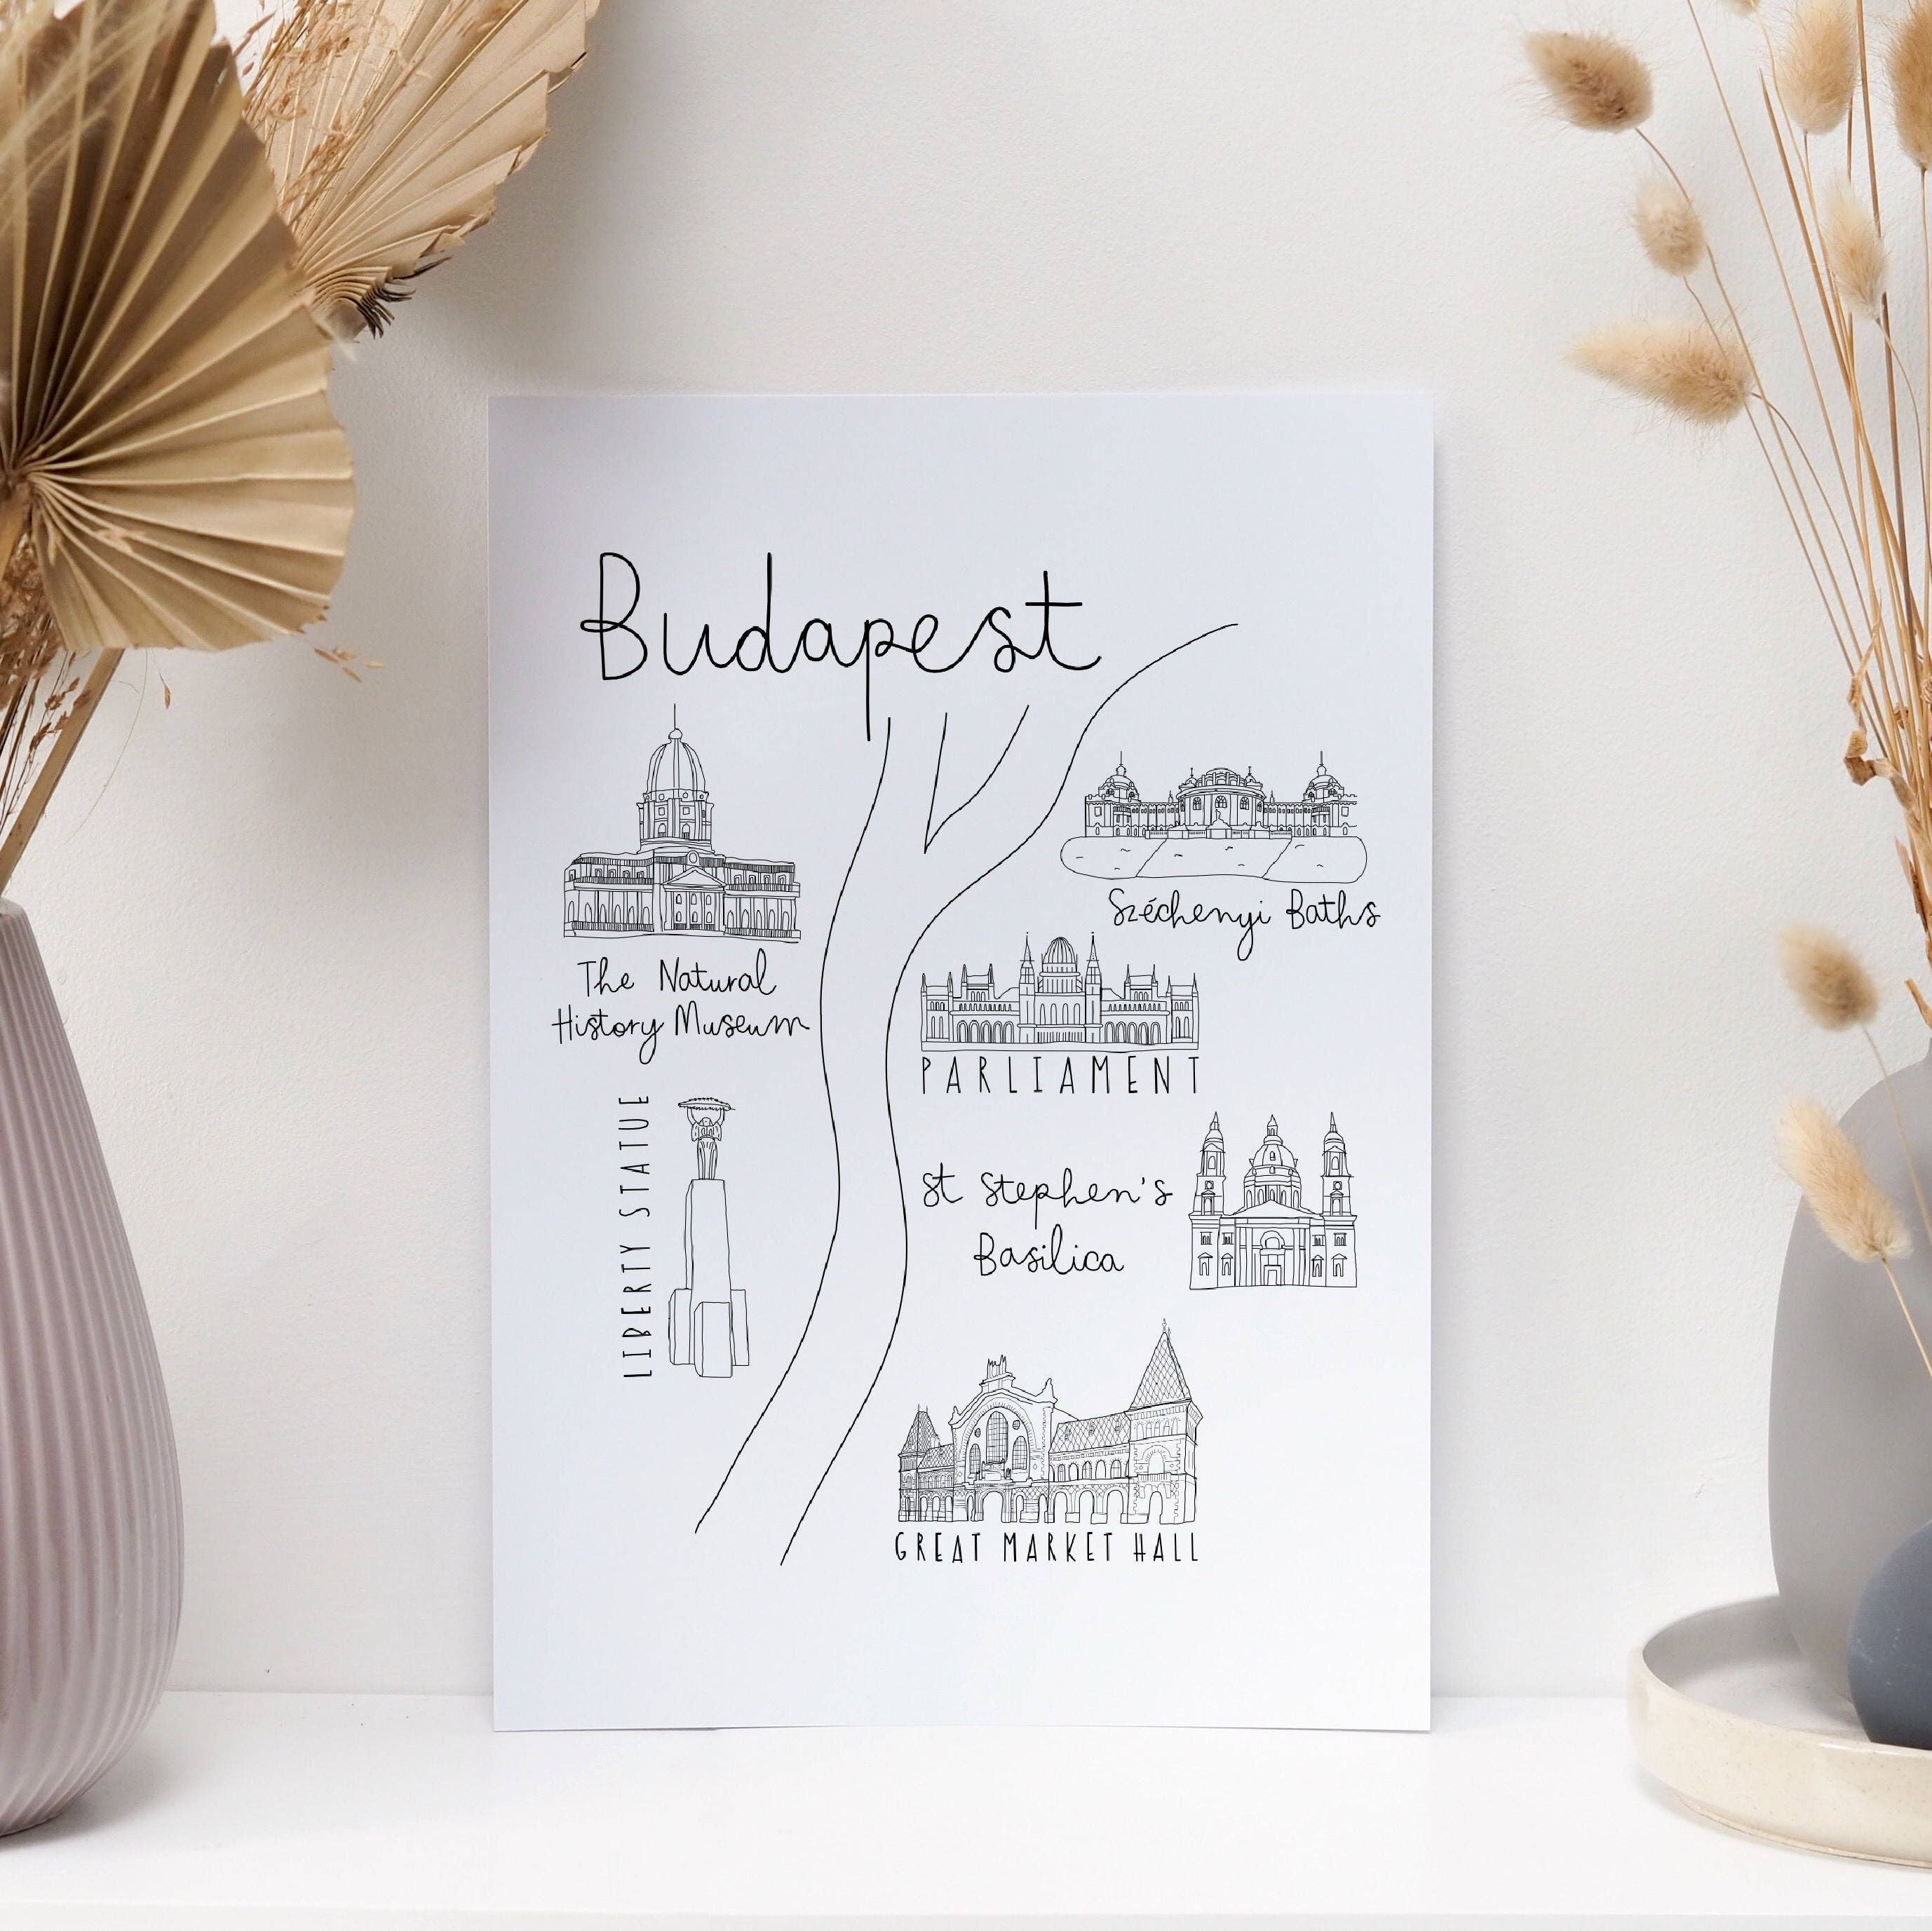 Budapest
The Natural
History Museum
Széchenyi Baths
PARLIAMENT
LIBERTY STATUE
St Stephen's
Basilica
GREAT MARKET HALL